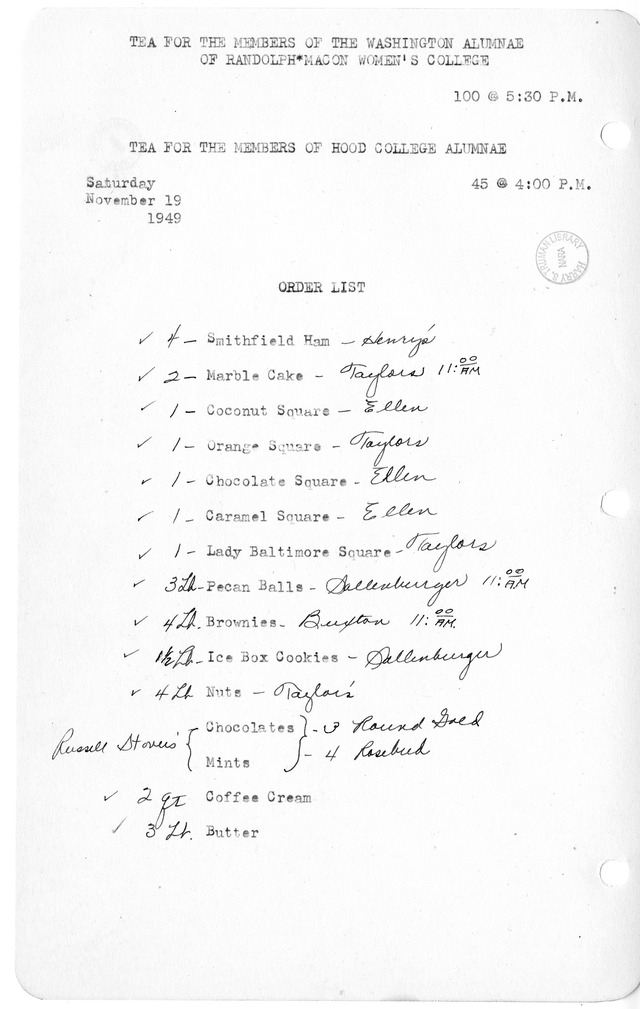 TEA FOR THE MEMBERS OF THE WASHINGTON ALUMNAE
OF RANDOLPH*MACON WOMEN'S COLLEGE
100 @ 5:30 P.M.
TEA FOR THE MEMBERS OF HOOD COLLEGE ALUMNAE
Saturday 45 @ 4:00 P.M.
November 19
1949
HARRY S. TRUMAN LIBRARY
NARA
ORDER LIST
✓ 4 – Smithfield Ham – Henry's
✓ 2 – Marble Cake – Taylors 11:00 AM
✓ 1 – Coconut Square – Ellen
✓ 1 – Orange Square – Taylors
✓ 1 – Chocolate Square – Ellen
✓ 1 – Caramel Square – Ellen
✓ 1 – Lady Baltimore Square – Taylors
✓ 3 Lb – Pecan Balls – Sallenburger 11:00 AM
✓ 4 Lb. Brownies – Buxton 11:00 AM.
✓ 1½ Lb – Ice Box Cookies – Sallenburger
✓ 4 Lb Nuts – Taylor's
Russell Stovers' { Chocolates } – 3 Round Gold
Mints – 4 Rosebud
✓ 2 qt Coffee Cream
✓ 3 Lb. Butter